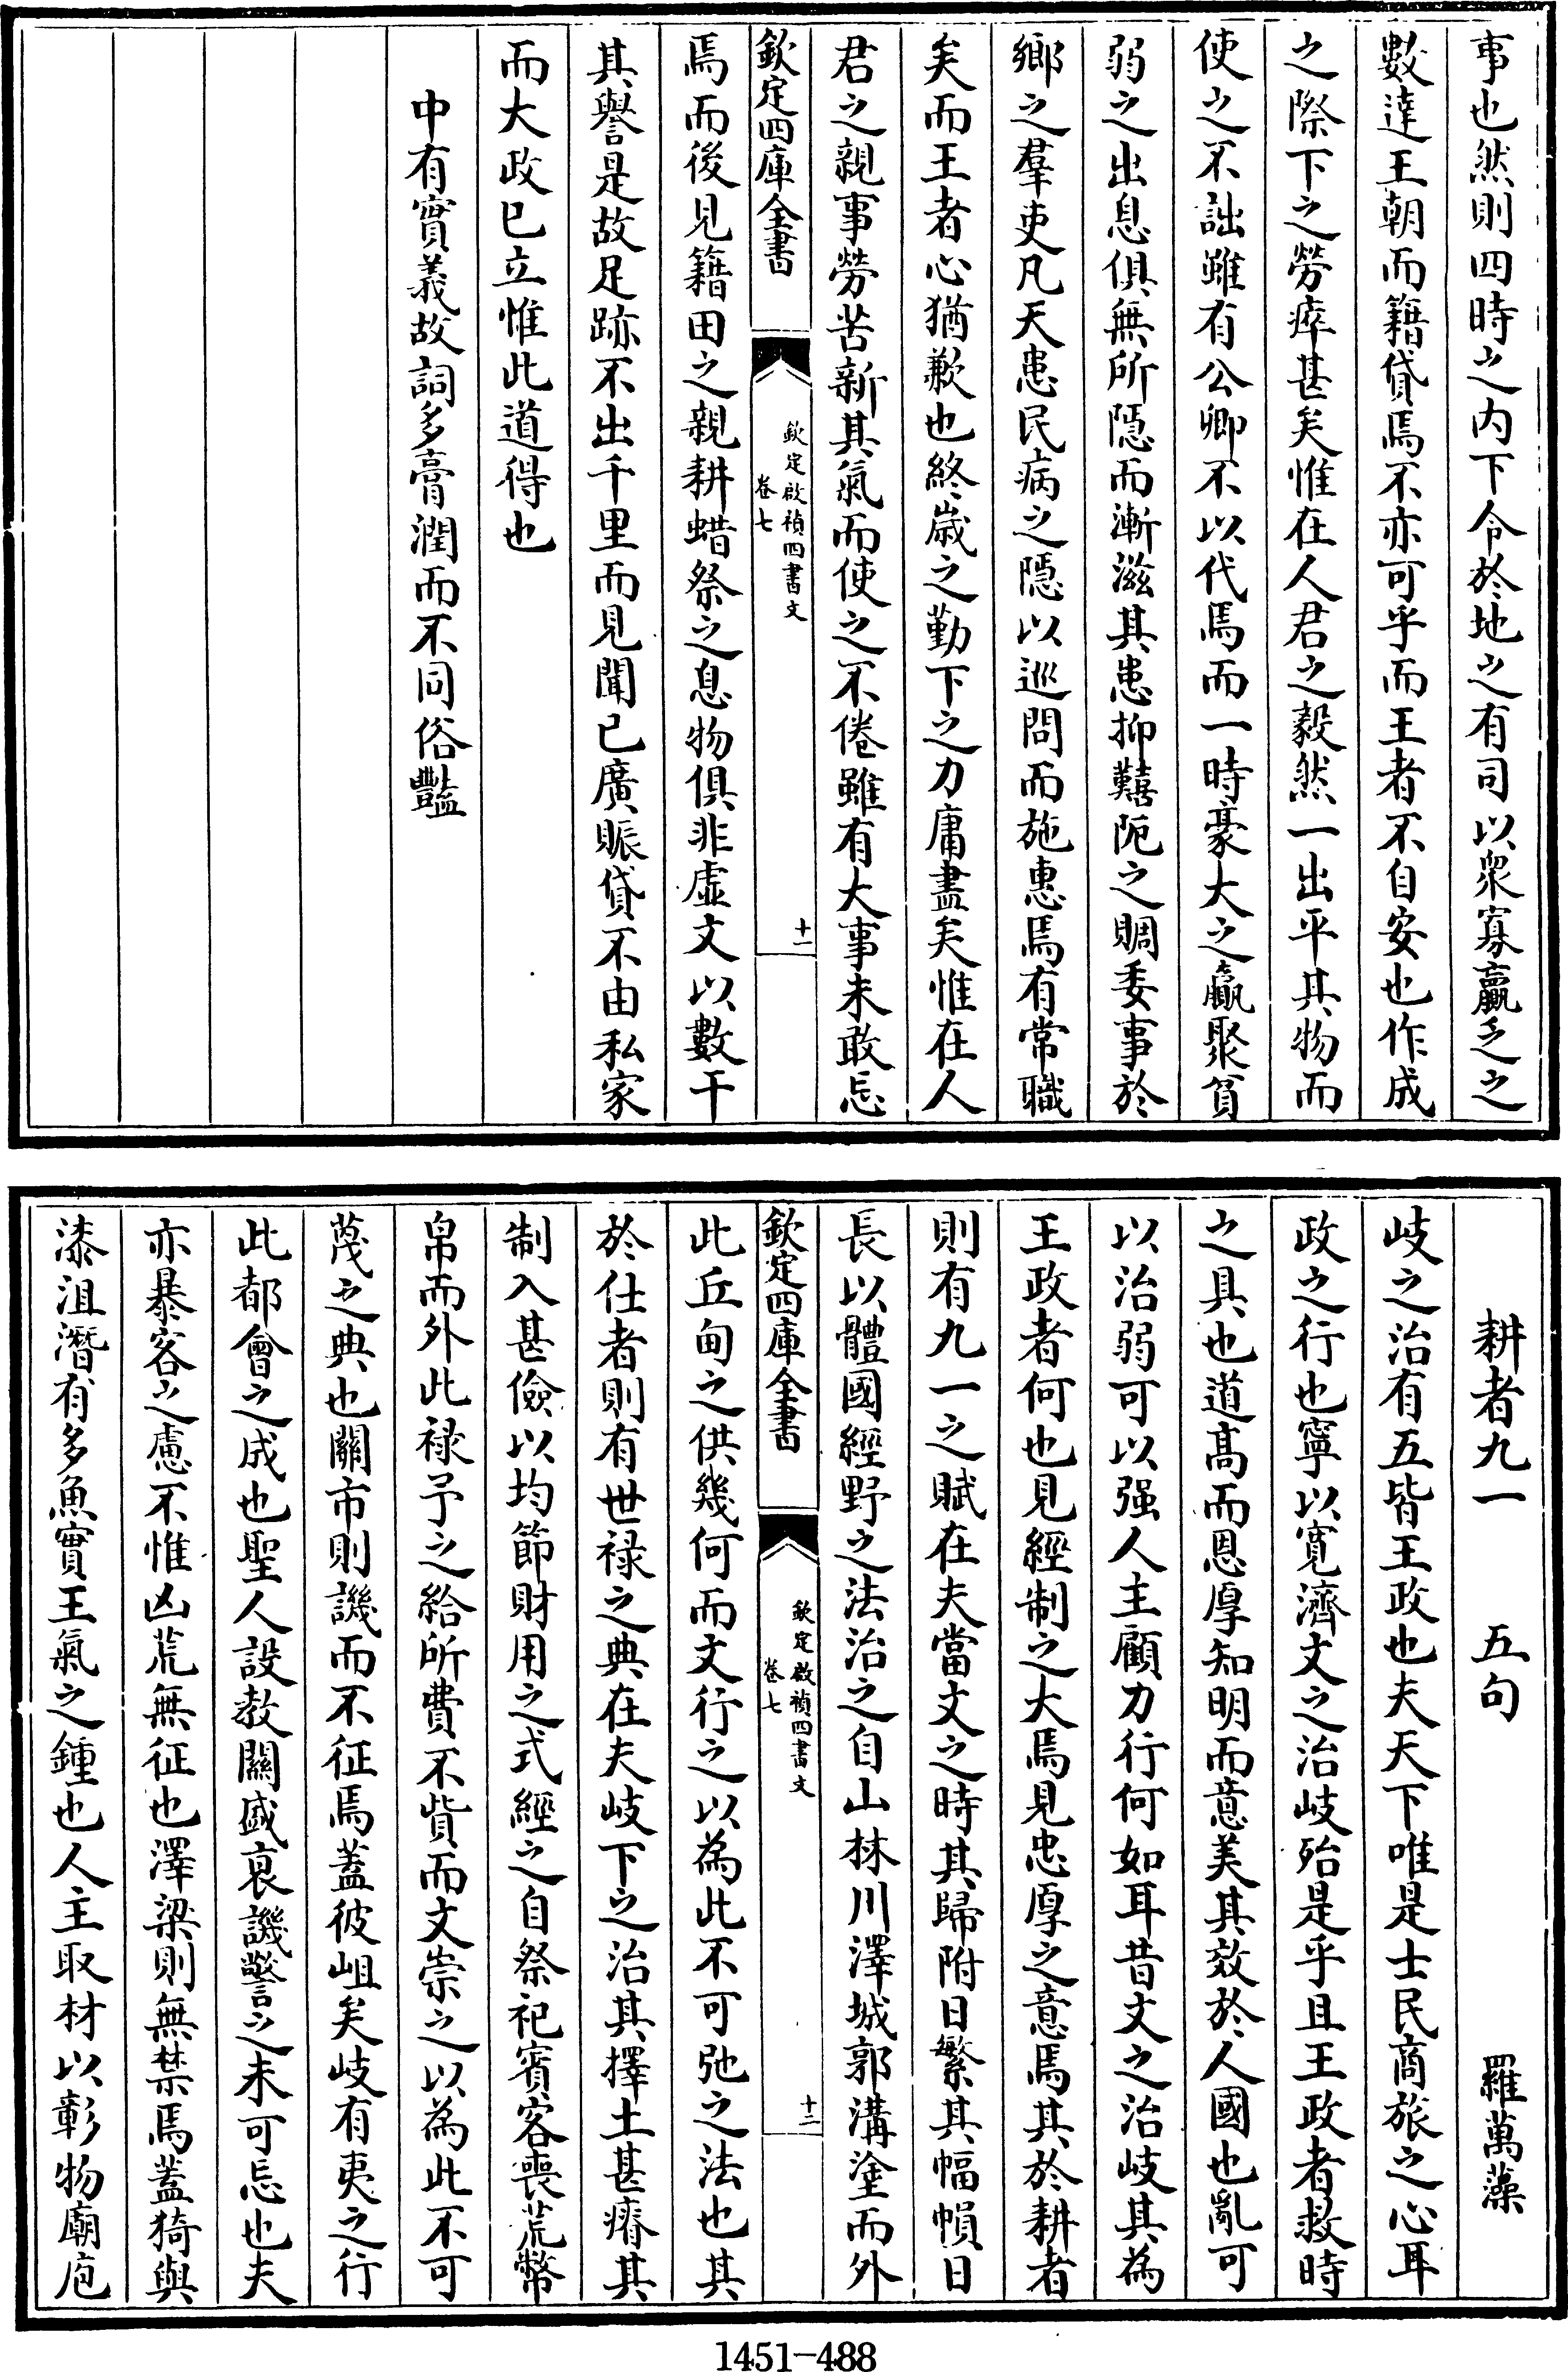 事也然則四時之内下令於地之有司以衆寡贏乏之
數達王朝而籍貸焉不亦可乎而王者不自安也作成
之際下之勞瘁甚矣惟在人君之毅然一出平其物而
使之不詘雖有公卿不以代焉而一時豪大之贏聚貧
弱之出息俱無所隱而漸滋其患抑囏阨之賙委事於
鄉之羣吏凡天患民病之隱以巡問而施惠焉有常職
矣而王者心猶歉也終歲之勤下之力庸盡矣惟在人
君之親事勞苦新其氣而使之不倦雖有大事未敢忘
欽定四庫全書
欽定啟禎四書文
卷七
十一
焉而後見籍田之親耕蜡祭之息物俱非虛文以數干
其譽是故足跡不出千里而見聞已廣賑貸不由私家
而大政已立惟此道得也
中有實義故詞多膏潤而不同俗豔
耕者九一 五句 羅萬藻
岐之治有五皆王政也夫天下唯是士民商旅之心耳
政之行也寧以寛濟文之治岐殆是乎且王政者救時
之具也道髙而恩厚知明而意美其效於人國也亂可
以治弱可以强人主顧力行何如耳昔文之治岐其為
王政者何也見經制之大焉見忠厚之意焉其於耕者
則有九一之賦在夫當文之時其歸附日繁其幅幀日
長以體國經野之法治之自山林川澤城郭溝塗而外
欽定四庫全書
欽定啟禎四書文
卷七
十二
此丘甸之供幾何而文行之以為此不可弛之法也其
於仕者則有世禄之典在夫岐下之治其擇土甚瘠其
制入甚儉以均節財用之式經之自祭祀賓客喪荒幣
帛而外此禄予之給所費不貲而文崇之以為此不可
蔑之典也關市則譏而不征焉蓋彼岨矣岐有夷之行
此都會之成也聖人設教關盛衰譏警之未可忘也夫
亦暴客之慮不惟凶荒無征也澤梁則無禁焉蓋猗與
漆沮潛有多魚實王氣之鍾也人主取材以彰物廟庖
1451-488